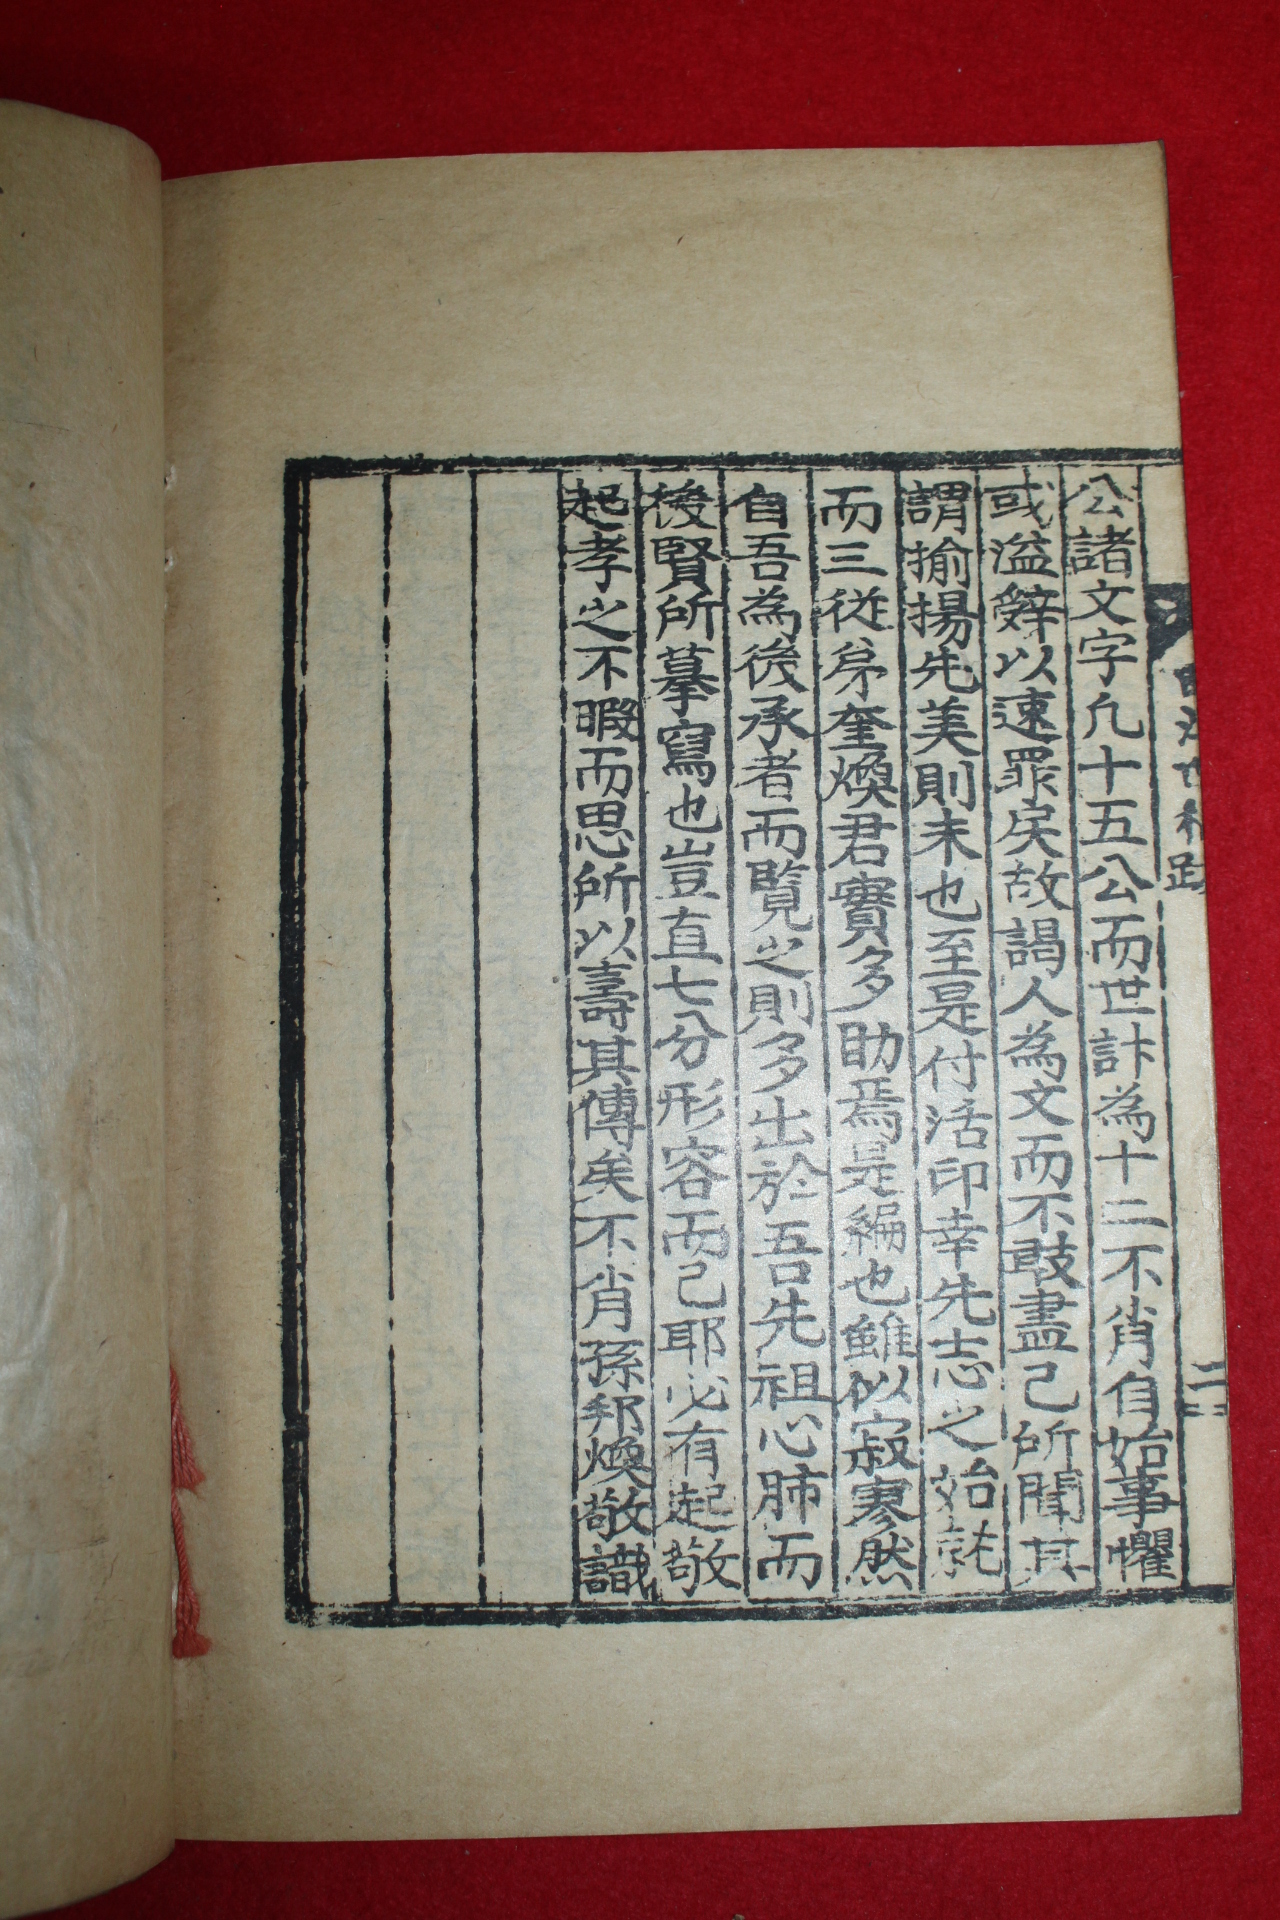 公諸文字凡十五公而世計為十二不肖自始事懼
或溢辭以速罪戾故謁人為文而不敢盡己所聞其
謂揄揚先美則末也至是付活印幸先志之始就
而三從弟奎煥君實多助焉是編也雖似寂寥然
自吾為後承者而覽之則多出於吾先祖心肺而
後賢所摹寫也豈直七分形容而己耶必有起敬
起孝之不暇而思所以壽其傳矣不肖孫邦煥敬識
二